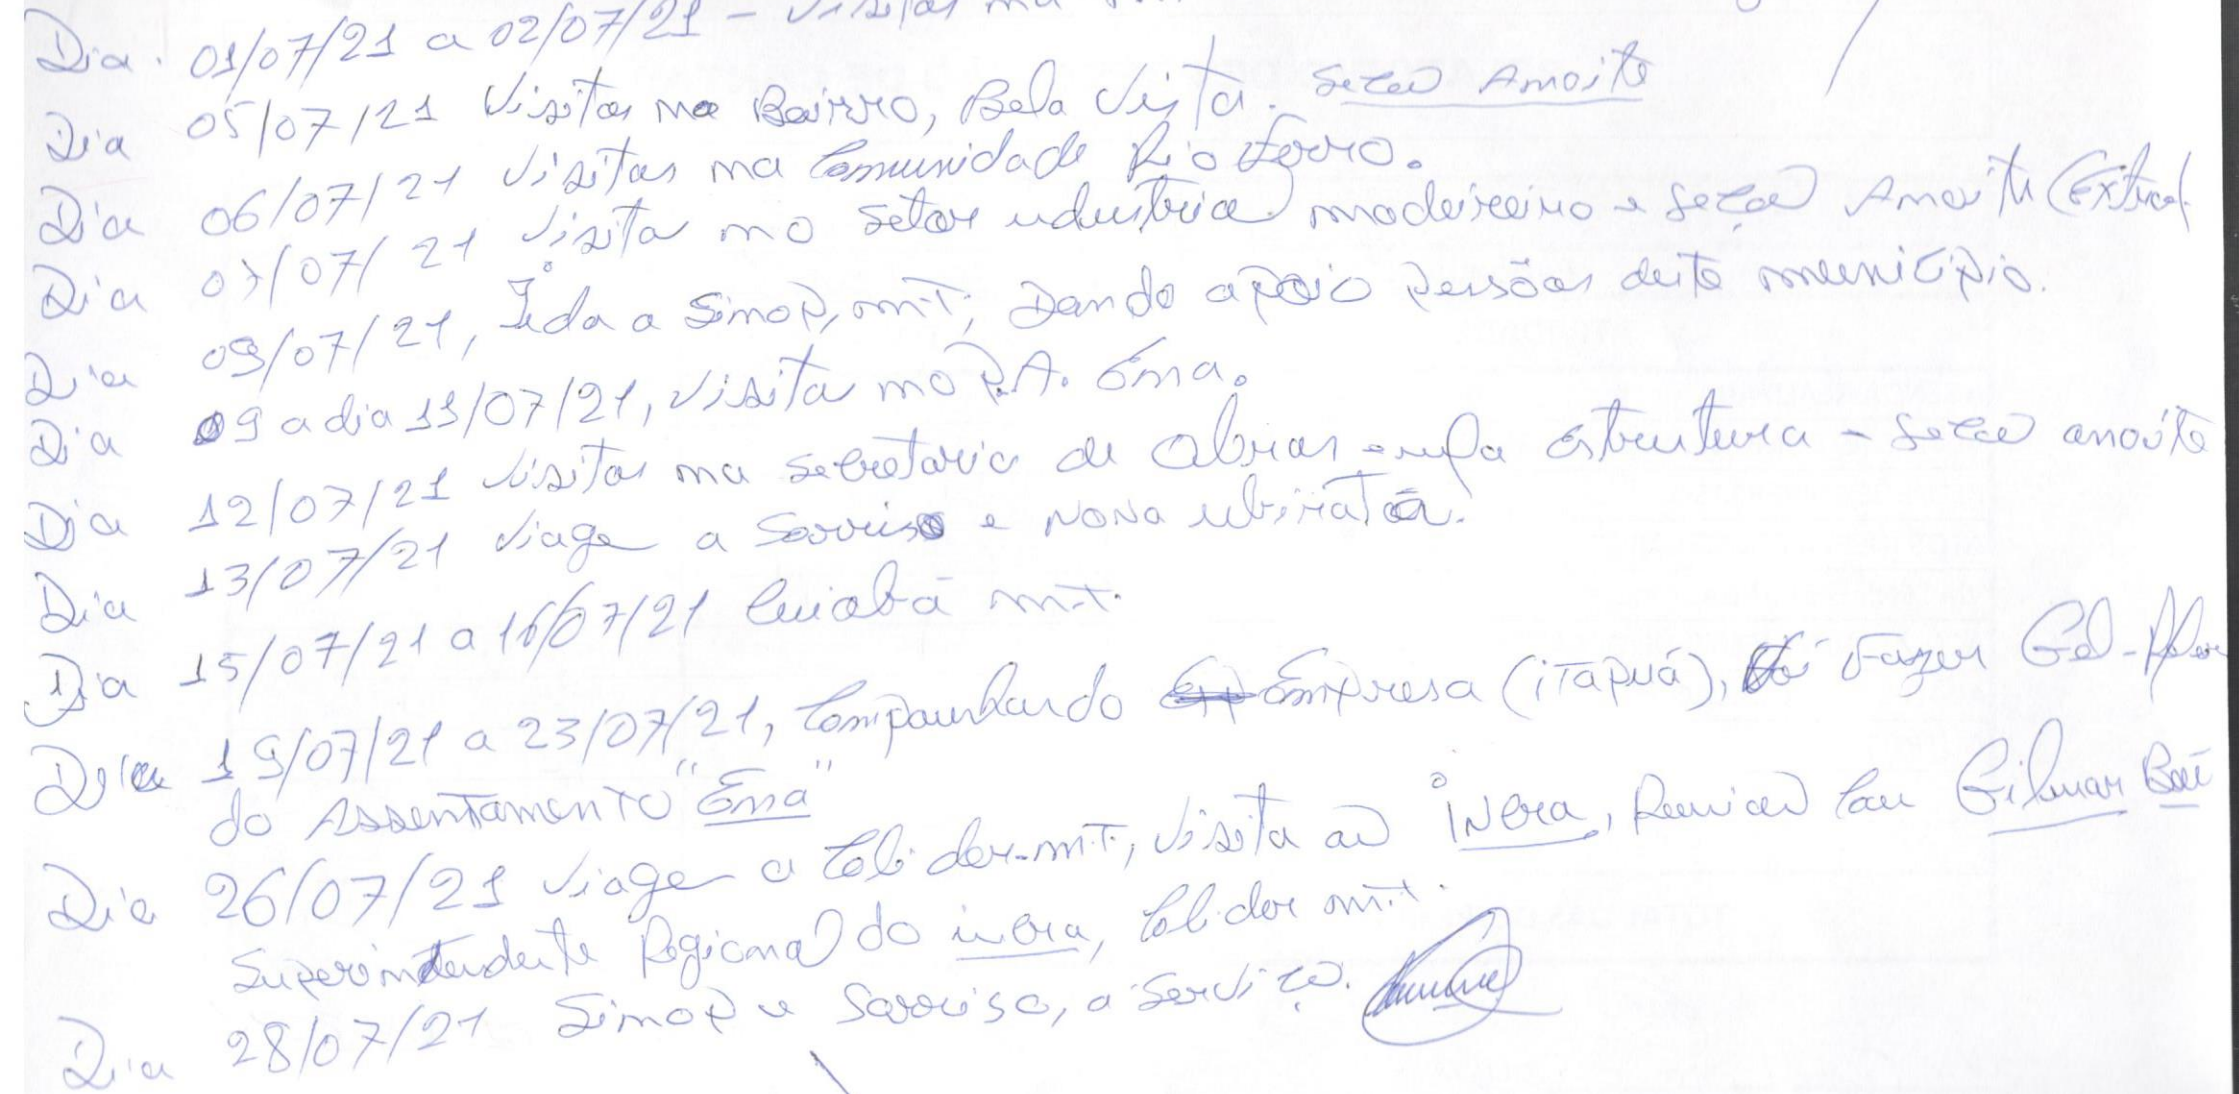 Dia. 01/07/21 a 02/07/21 - Visitas na
Dia 05/07/21 Visitas no Bairro, Bela Vista. Seção Anoite
Dia 06/07/21 Visitas na Comunidade Rio Ferro.
Dia 07/07/21 Visita no Setor industria madeireiro e seção Anoite (Extra)
Dia 09/07/21, Ida a Sinop, m-T, Dando apoio pessôas deste município.
Dia 09 a dia 11/07/21, Visita no P.A. Ema.
Dia 12/07/21 Visitas na Secretaria de Obras e infa estrutura - seção anoite
Dia 13/07/21 Viage a Sorriso e Nova ubiratã.
Dia 15/07/21 a 16/07/21 Cuiabá m-t.
Dia 19/07/21 a 23/07/21, Companhando Empresa (ITAPUÁ), Fazer
do Assentamento "Ema"
Dia 26/07/21 Viage a Colider-m-T, Visita ao INCra, Reunião Com Gilmar
Superintendente Regional do incra, Colider m-t.
Dia 28/07/21 Sinop e Sorriso, a Serviço.